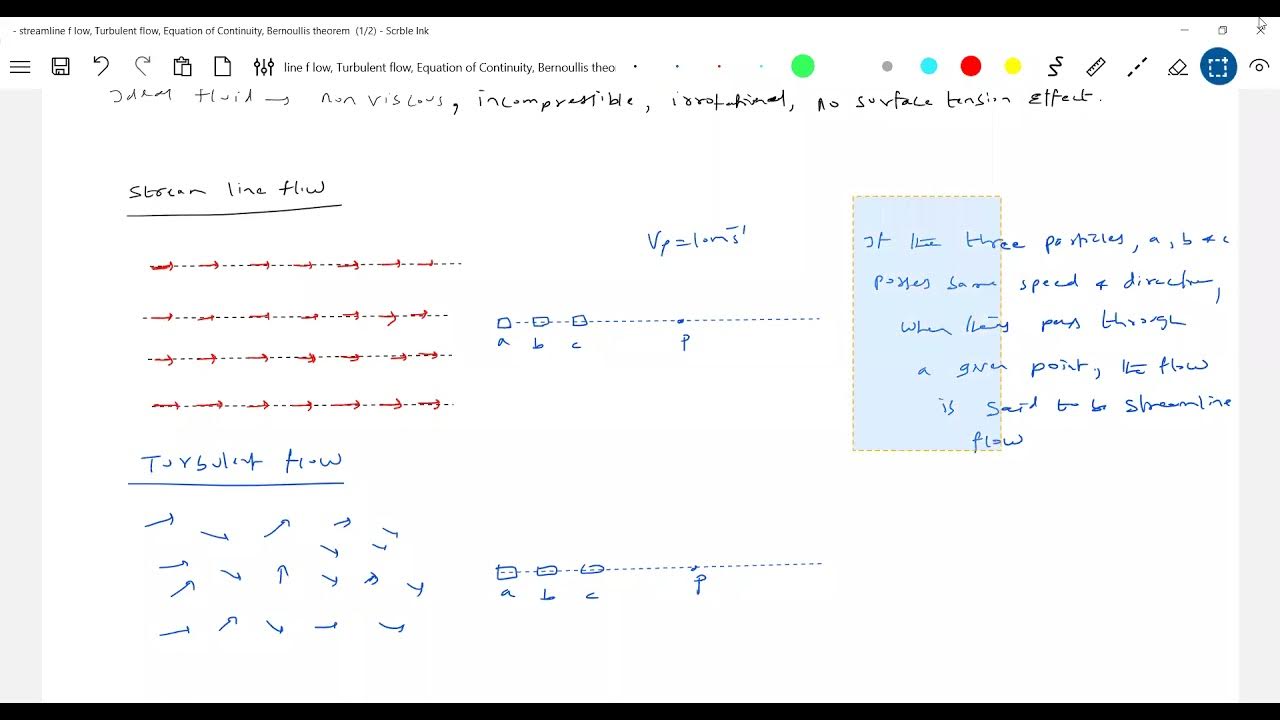 - streamline f low, Turbulent flow, Equation of Continuity, Bernoullis theorem (1/2) - Scrble Ink
line f low, Turbulent flow, Equation of Continuity, Bernoullis theo
Ideal fluid → non viscous, incompressible, irrotational, no surface tension effect.
Stream line flow
Vp = 10ms⁻¹
a b c P
If the three particles, a, b & c
posses same speed & direction,
when they pass through
a given point, the flow
is said to be streamline
flow
Turbulent flow
a b c P